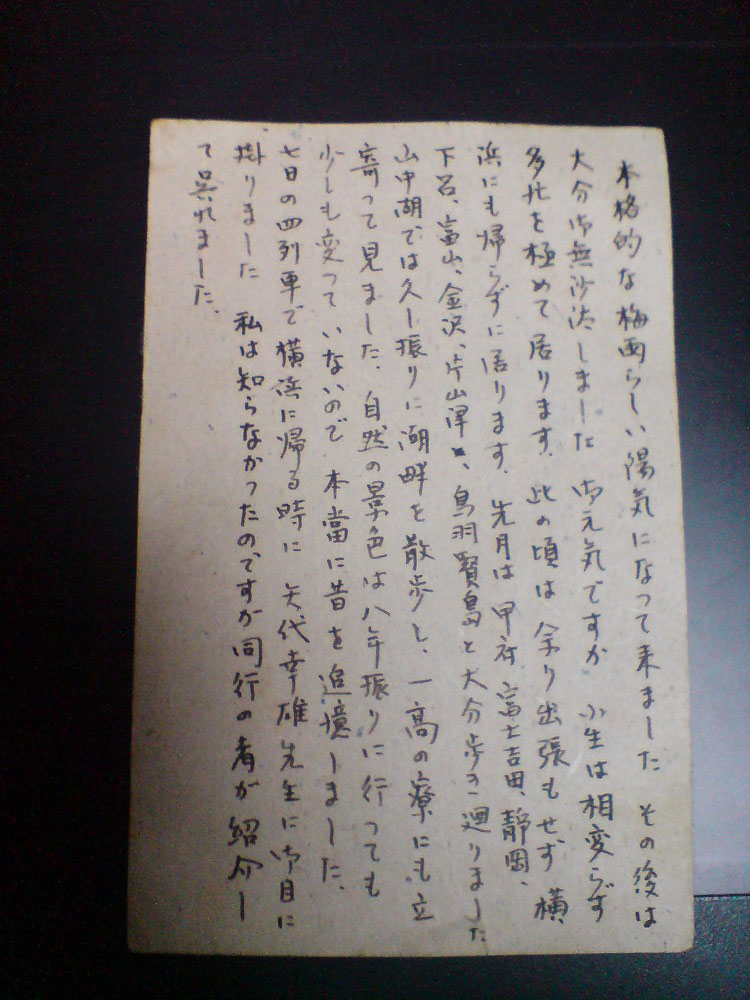 本格的な梅雨らしい陽気になって来ました その後は
大分御無沙汰しました 御元気ですか 小生は相変らず
多忙を極めて居ります。此の頃は余り出張もせず 横
浜にも帰らずに居ります。先月は甲府 富士吉田、静岡、
下呂、富山、金沢、片山津と、鳥羽賢島と大分歩き廻りました
山中湖では久し振りに湖畔を散歩し、一高の寮にも立
寄って見ました。自然の景色は八年振りに行っても
少しも変っていないので 本當に昔を追憶しました。
七日の四列車で横浜に帰る時に 矢代幸雄先生に御目に
掛りました 私は知らなかったのですが同行の者が紹介し
て呉れました。